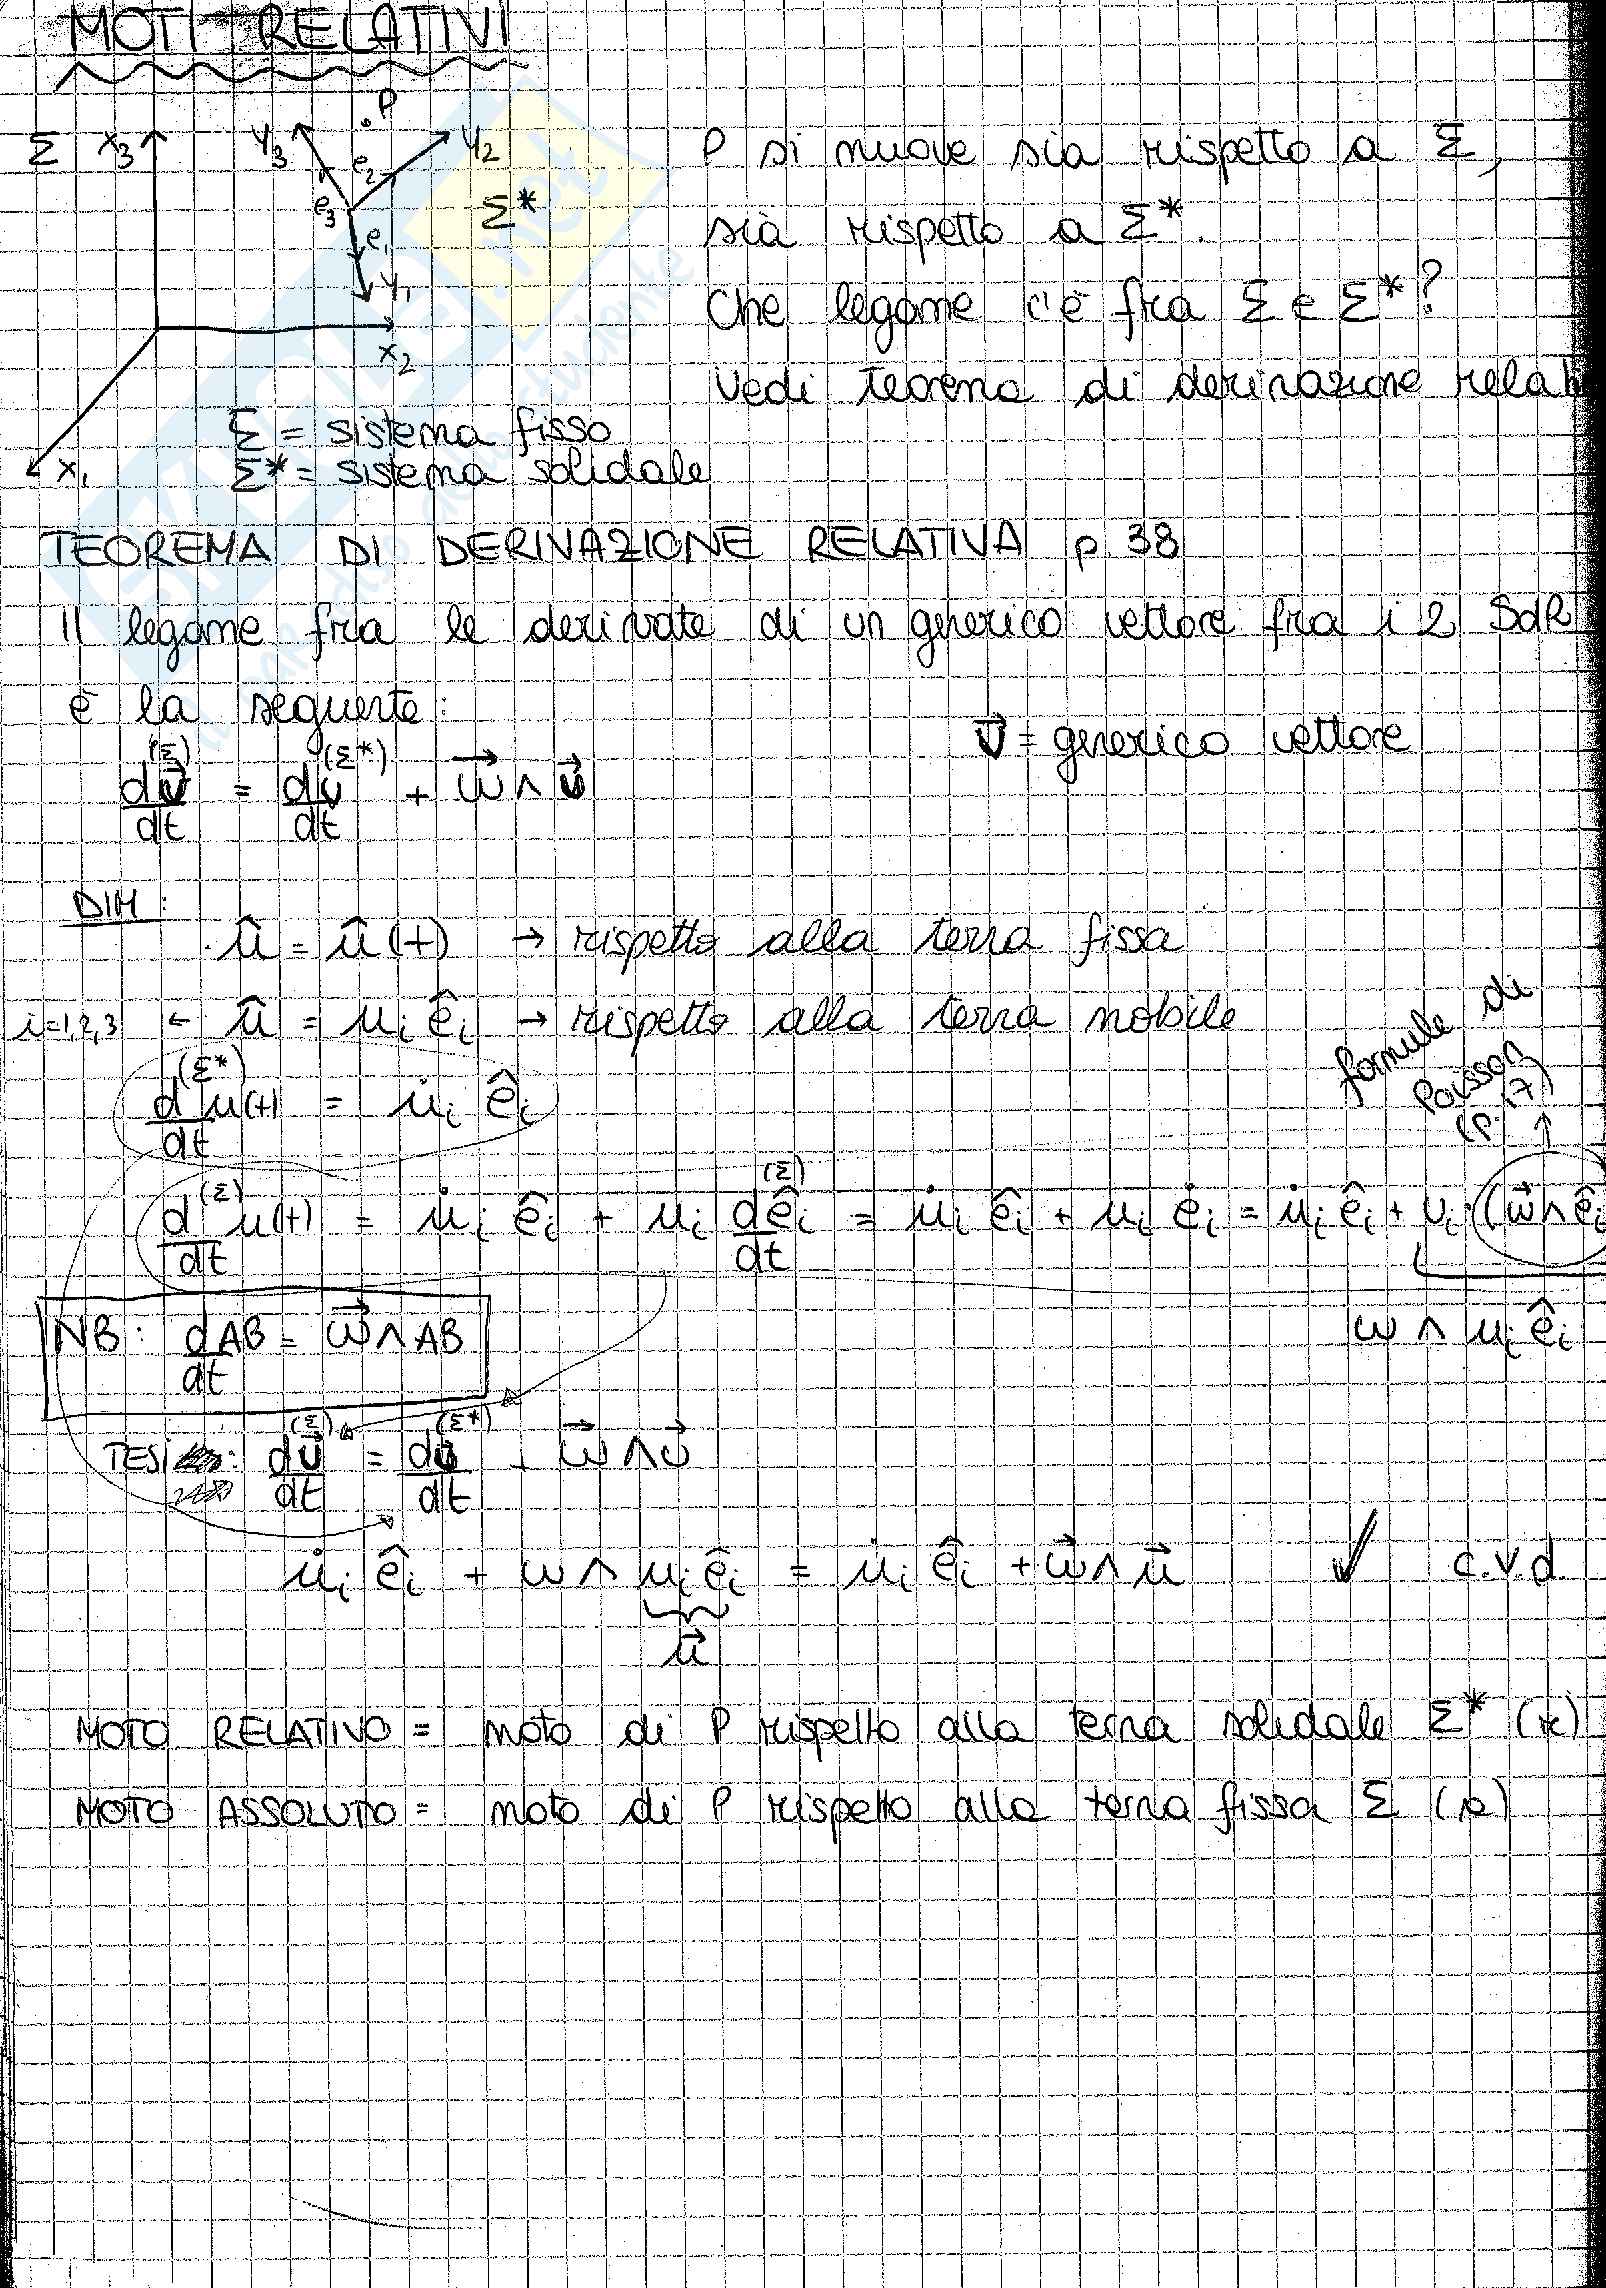 MOTI RELATIVI
Σ x₃ y₃ P y₂
e₂
e₃ Σ*
e₁
y₁
x₂
x₁
P si muove sia rispetto a Σ,
sia rispetto a Σ*.
Che legame c'è fra Σ e Σ*?
Vedi teorema di derivazione relati
Σ = sistema fisso
Σ* = sistema solidale
TEOREMA DI DERIVAZIONE RELATIVA p. 38
Il legame fra le derivate di un generico vettore fra i 2 SdR
è la seguente:
v⃗ = generico vettore
d^(Σ)v⃗/dt = d^(Σ*)v/dt + ω⃗ ∧ v⃗
DIM:
û = û(t) → rispetto alla terna fissa
i=1,2,3 ← û = uᵢ êᵢ → rispetto alla terna mobile
formule di
Poisson
(p. 17)
d^(Σ*)/dt u(t) = u̇ᵢ êᵢ
d^(Σ)/dt u(t) = u̇ᵢ êᵢ + uᵢ d^(Σ)êᵢ/dt = u̇ᵢ êᵢ + uᵢ ėᵢ = u̇ᵢ êᵢ + uᵢ · (ω⃗ ∧ êᵢ
ω ∧ uᵢ êᵢ
NB: d/dt AB = ω⃗ ∧ AB
TESI : d^(Σ)v⃗/dt = d^(Σ*)v⃗/dt + ω⃗ ∧ v⃗
u̇ᵢ êᵢ + ω ∧ uᵢ êᵢ = u̇ᵢ êᵢ + ω⃗ ∧ u⃗ ✓ c.v.d.
u⃗
MOTO RELATIVO = moto di P rispetto alla terna solidale Σ* (r)
MOTO ASSOLUTO = moto di P rispetto alla terna fissa Σ (a)